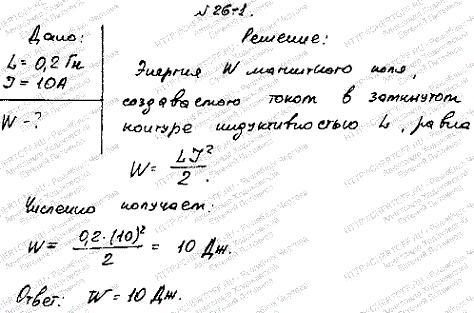 № 26-1.
Дано:
L = 0,2 Гн
I = 10 А
W - ?
Решение:
Энергия W магнитного поля,
создаваемого током в замкнутом
контуре индуктивностью L, равна
W = LI²/2.
Численно получаем:
W = 0,2·(10)²/2 = 10 Дж.
Ответ: W = 10 Дж.